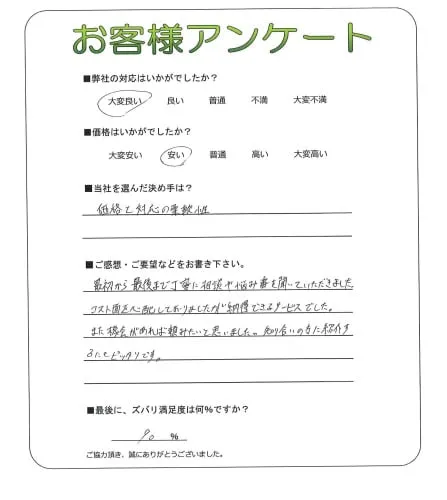 お客様アンケート
■弊社の対応はいかがでしたか？
大変良い 良い 普通 不満 大変不満
■価格はいかがでしたか？
大変安い 安い 普通 高い 大変高い
■当社を選んだ決め手は？
価格と対応の柔軟性
■ご感想・ご要望などをお書き下さい。
最初から最後まで丁寧に相談や悩み事を聞いていただきました
コスト面を心配しておりましたが納得できるサービスでした。
また機会があれば頼みたいと思いました。知り合いの方に紹介す
るにもピッタリです。
■最後に、ズバリ満足度は何%ですか？
90 %
ご協力頂き、誠にありがとうございました。